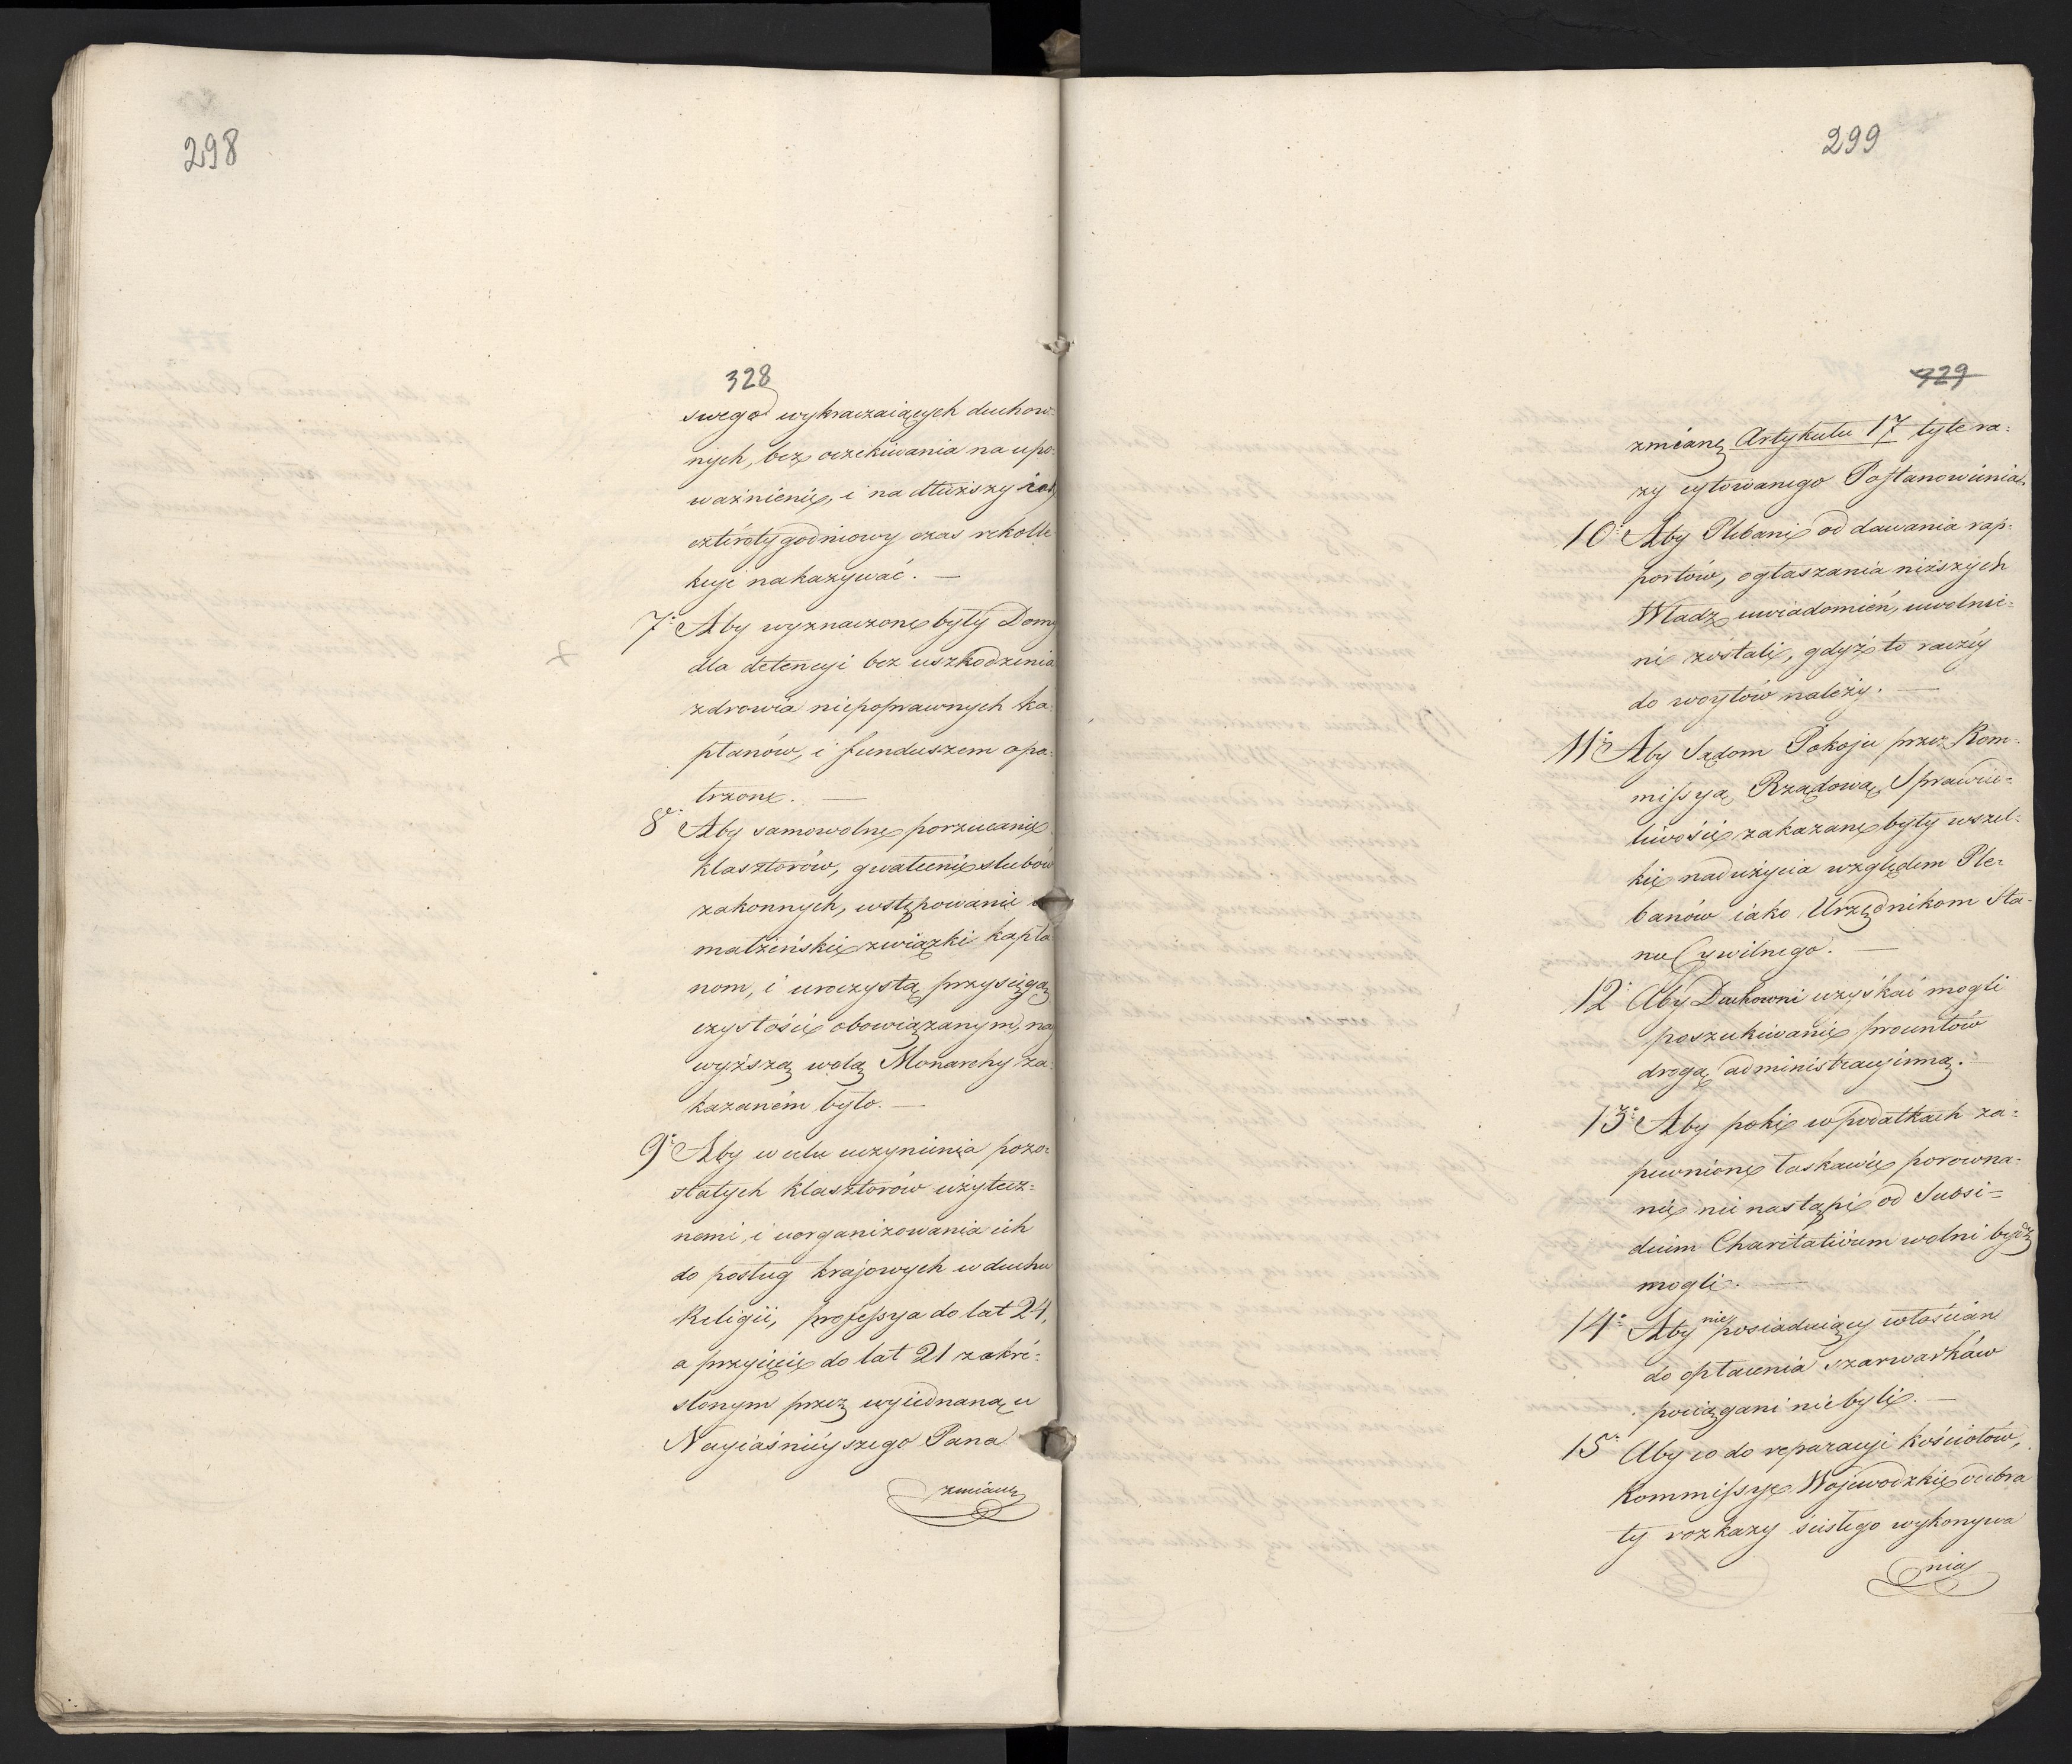 298
328
swego wykraczaiących duchow=
nych, bez oczekiwania na upo=
ważnienie, i na dłuższy iak
czterotygodniowy czas rekolle
kcye nakazywać. —
7° Aby wyznaczone były Domy
dla detencyi bez uszkodzenia
zdrowia niepoprawnych ka=
płanów, i funduszem opa=
trzone. —
8° Aby samowolne porzucanie
klasztorów, gwałcenie ślubów
zakonnych, wstępowanie
małżeńskie związki kapła
nom, i uroczystą przysięgą
czystości obowiązanym, na
wyższą wolą Monarchy za=
kazanem było. —
9° Aby w celu uczynienia pozo=
stałych klasztorów użytecz=
nemi, i uorganizowania ich
do posług krajowych w duchu
Religii, professya do lat 24,
a przyięcie do lat 21 zakre=
ślonym przez wyiednaną u
Nayiaśnieyszego Pana
zmianę
299
329
zmianę Artykułu 17 tyle ra=
zy cytowanego Postanowienia.
10° Aby Plebani od dawania rap=
portów, ogłaszania niższych
Władz uwiadomień, uwolnie=
ni zostali, gdyż to raczéy
do woytów należy. —
11° Aby Sądom Pokoju przez Kom=
missyą Rządową Sprawied=
liwości zakazane były wszel=
kie nadużycia względem Ple=
banów iako Urzędnikom Sta=
nu Cywilnego. —
12° Aby Duchowni uzyskać mogli
poszukiwanie procentów
drogą administracyiną. —
13° Aby poki w podatkach za=
pewnione łaskawie porowna=
nie nie nastąpi od Subsi=
dium Charitativum wolni bydź
mogli. —
14° Aby nie posiadaiący włościan
do opłacenia szarwarków
pociągani nie byli. —
15° Aby co do reparacyi kościołów,
Kommissye Wojewodzkie odebra
ły rozkazy ścisłego wykonywa
nia